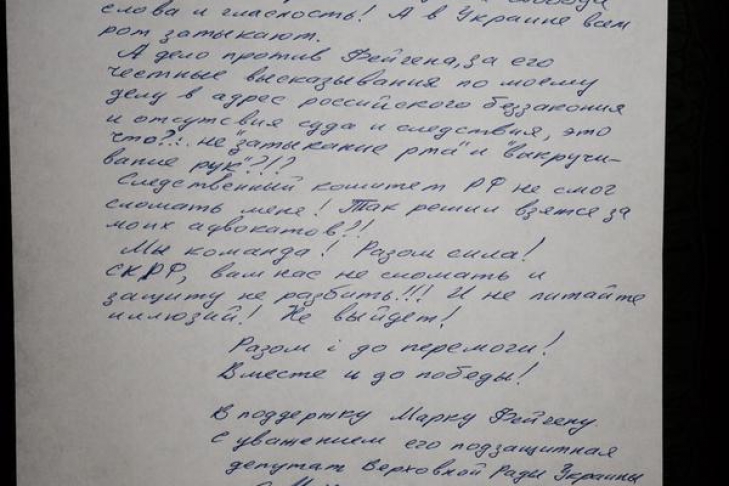 слова и гласность! А в Украине всем
рот затыкают.
А дело против Фейгена, за его
честные высказывания по моему
делу в адрес российского беззакония
и отсутсвия суда и следствия, это
что?.. не "затыкание рта" и "выкручи-
вание рук"?!?
Следственный комитет РФ не смог
сломать меня! Так решили взятся за
моих адвокатов?!
Мы команда! Разом сила!
СКРФ, вам нас не сломать и
защиту не разбить!!! И не питайте
иллюзий! Не выйдет!
Разом і до перемоги!
Вместе и до победы!
В поддержку Марку Фейгену.
С уважением его подзащитная
депутат Верховной Ради Украины